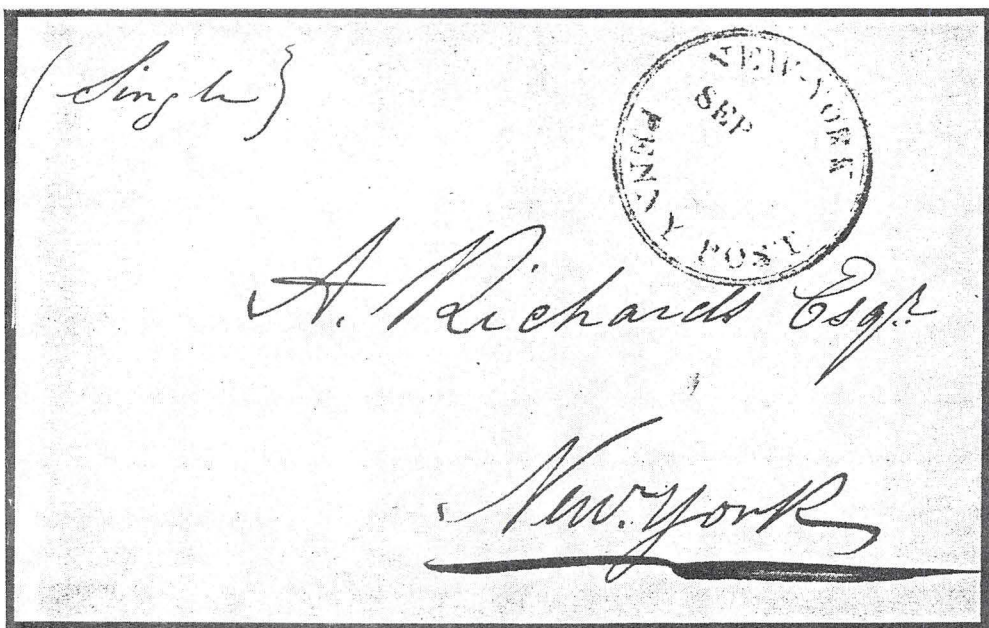 (Single}
NEW-YORK
SEP
PENNY POST
A. Richards Esqr.
New.York